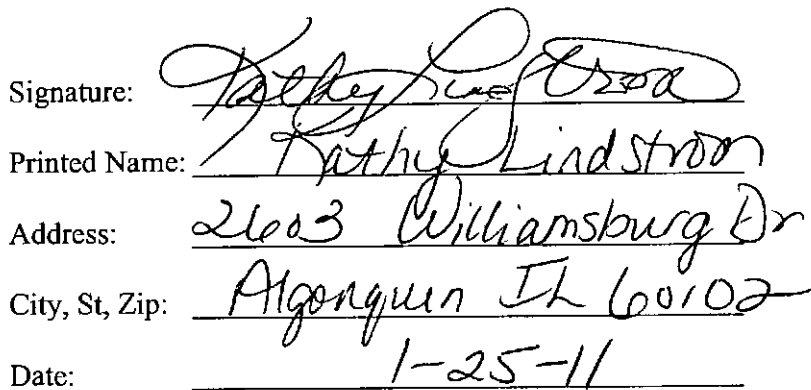 Signature: Kathy Lindstrom
Printed Name: Kathy Lindstrom
Address: 2603 Williamsburg Dr
City, St, Zip: Algonquin IL 60102
Date: 1-25-11